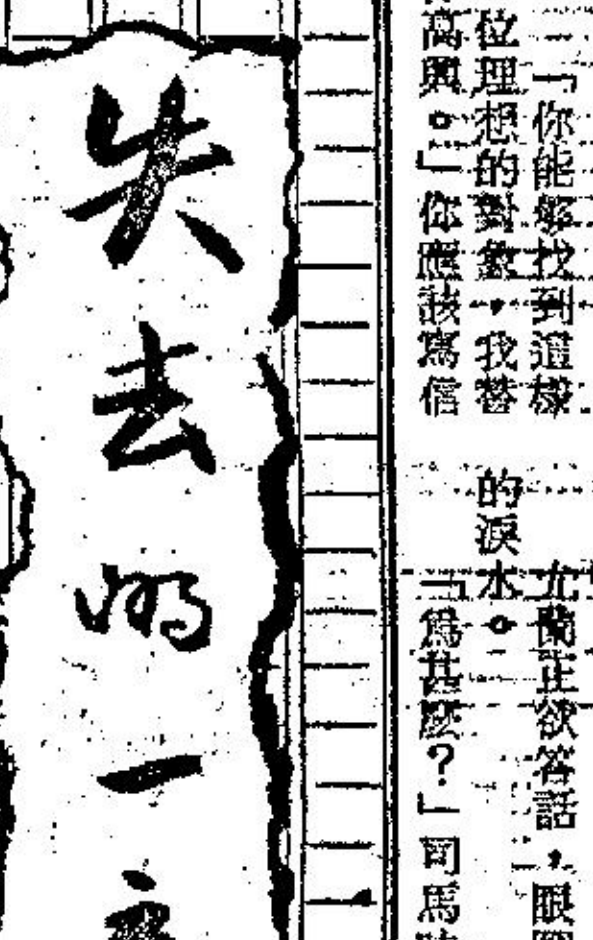 「你能夠找到這樣
位理想的對象，我替
高興。」你應該寫信
尤蘭正欲答話，眼
的淚水。
「爲甚麼？」司馬
失去的一